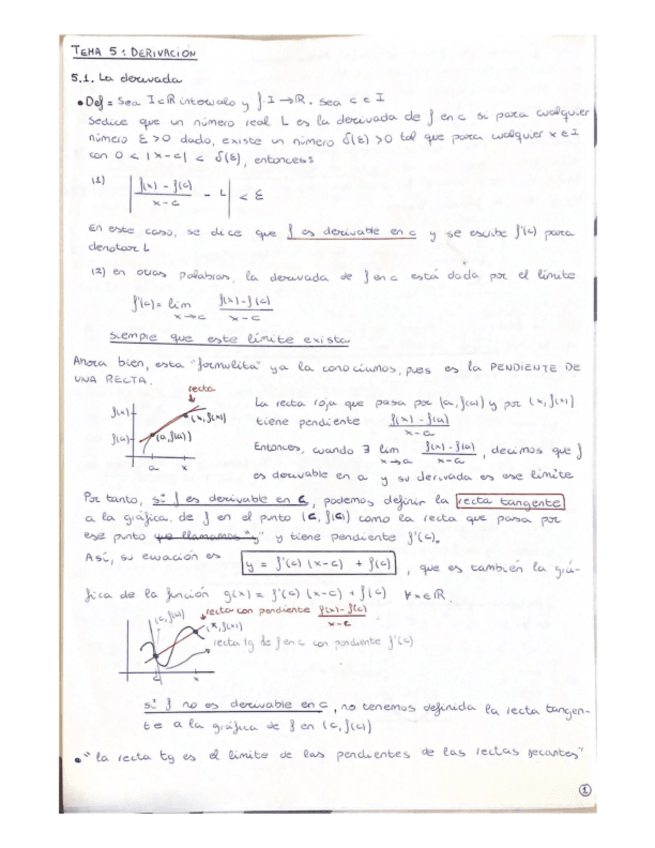 TEMA 5: DERIVACIÓN
5.1. La derivada
• Def = Sea I⊂ℝ intervalo y f: I → ℝ. Sea c ∈ I
Se dice que un número real L es la derivada de f en c si para cualquier
número ε > 0 dado, existe un número δ(ε) > 0 tal que para cualquier x ∈ I
con 0 < |x - c| < δ(ε), entonces:
(1) | (f(x) - f(c)) / (x - c) - L | < ε
En este caso, se dice que f es derivable en c y se escribe f'(c) para
denotar L
(2) en otras palabras, la derivada de f en c está dada por el límite
f'(c) = lim x→c (f(x) - f(c)) / (x - c)
siempre que este límite exista
Ahora bien, esta "formulita" ya la conocíamos, pues es la PENDIENTE DE
UNA RECTA.
recta
f(x)
(x, f(x))
f(a)
(a, f(a))
a x
La recta roja que pasa por (a, f(a)) y por (x, f(x))
tiene pendiente (f(x) - f(a)) / (x - a)
Entonces, cuando ∃ lim x→a (f(x) - f(a)) / (x - a), decimos que f
es derivable en a y su derivada es ese límite
Por tanto, si f es derivable en c, podemos definir la recta tangente
a la gráfica de f en el punto (c, f(c)) como la recta que pasa por
ese punto que llamamos "y" y tiene pendiente f'(c).
Así, su ecuación es y = f'(c) (x-c) + f(c), que es también la grá-
fica de la función g(x) = f'(c) (x-c) + f(c) ∀x∈ℝ.
(c, f(c))
recta con pendiente (f(x) - f(c)) / (x - c)
(x, f(x))
recta tg de f en c con pendiente f'(c)
c x
si f no es derivable en c, no tenemos definida la recta tangen-
te a la gráfica de f en (c, f(c))
• "la recta tg es el límite de las pendientes de las rectas secantes"
1